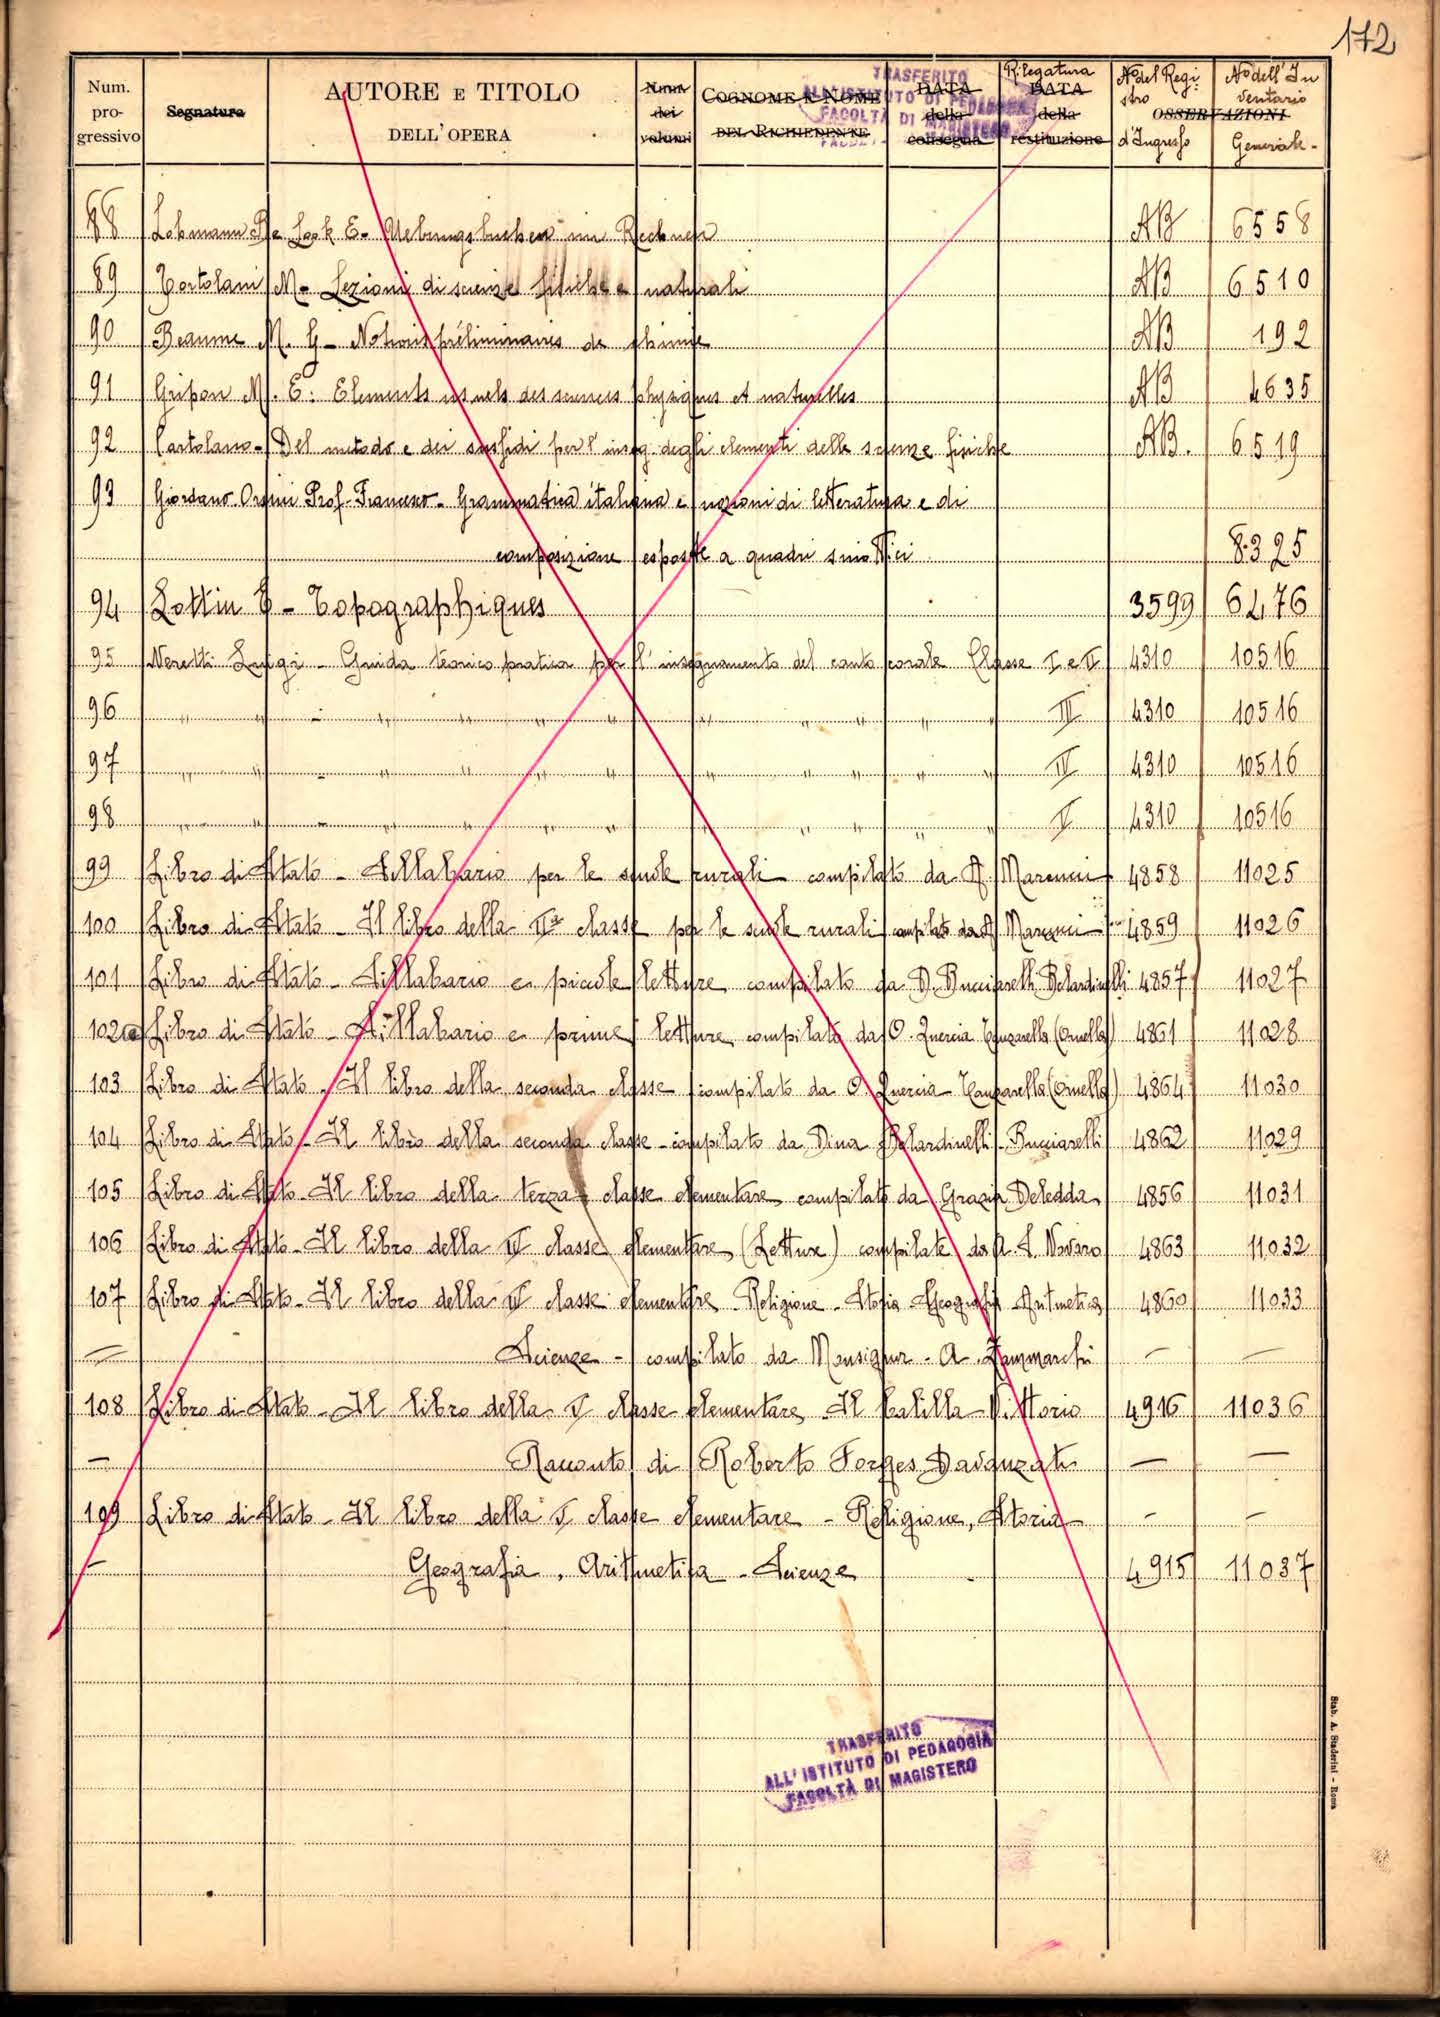 172
Num. progressivo Segnatura AUTORE E TITOLO DELL'OPERA Num. dei volumi COGNOME E NOME DEL RICHIEDENTE DATA della consegna Rilegatura DATA della restituzione No del Registro d'Ingresso OSSERVAZIONI No dell'Inventario Generale-
TRASFERITO
ALL'ISTITUTO DI PEDAGOGIA
FACOLTÀ DI MAGISTERO
88 Lobmann B e Look E- Uebungsbucher im Rechnen AB 6558
89 Tortolani M- Lezioni di scienze fisiche e naturali AB 6510
90 Beaume M. G- Notions préliminaires de chimie AB 192
91 Gripon M. E: Elements usuels des sciences physiques et naturelles AB 4635
92 Cartolano- Del metodo e dei sussidi per l'inseg. degli elementi delle scienze fisiche AB. 6519
93 Giordano-Orsini Prof. Francesco- Grammatica italiana e nozioni di letteratura e di
composizione esposte a quadri sinottici 8325
94 Lottin E - Topographiques 3599 6476
95 Neretti Luigi - Guida teorico pratica per l'insegnamento del canto corale Classe I e II 4310 10516
96 " " - " " " " " " " " " III 4310 10516
97 " " - " " " " " " " " " IV 4310 10516
98 " " - " " " " " " " " " V 4310 10516
99 Libro di Stato - Sillabario per le scuole rurali compilato da A. Marcucci 4858 11025
100 Libro di Stato - Il libro della IIa classe per le scuole rurali compilato da A Marcucci 4859 11026
101 Libro di Stato - Sillabario e piccole letture compilato da D. Bucciarelli Belardinelli 4857 11027
102 Libro di Stato - Sillabario e prime letture compilato da O. Quercia Tanzarella (Ornella) 4861 11028
103 Libro di Stato - Il libro della seconda classe compilato da O. Quercia Tanzarella (Ornella) 4864 11030
104 Libro di Stato - Il libro della seconda classe - compilato da Dina Belardinelli - Bucciarelli 4862 11029
105 Libro di Stato - Il libro della terza classe elementare compilato da Grazia Deledda 4856 11031
106 Libro di Stato - Il libro della IV classe elementare (Letture) compilate da A. S. Novaro 4863 11032
107 Libro di Stato - Il libro della IV classe elementare Religione - Storia Geografia Aritmetica 4860 11033
— Scienze - compilato da Monsignor - A. Zammarchi — —
108 Libro di Stato - Il libro della V classe elementare Il balilla Vittorio 4916 11036
— Racconto di Roberto Forges Davanzati — —
109 Libro di Stato - Il libro della V classe elementare - Religione, Storia — —
— Geografia, Aritmetica - Scienze 4915 11037
TRASFERITO
ALL'ISTITUTO DI PEDAGOGIA
FACOLTÀ DI MAGISTERO
Stab. A. Staderini - Roma